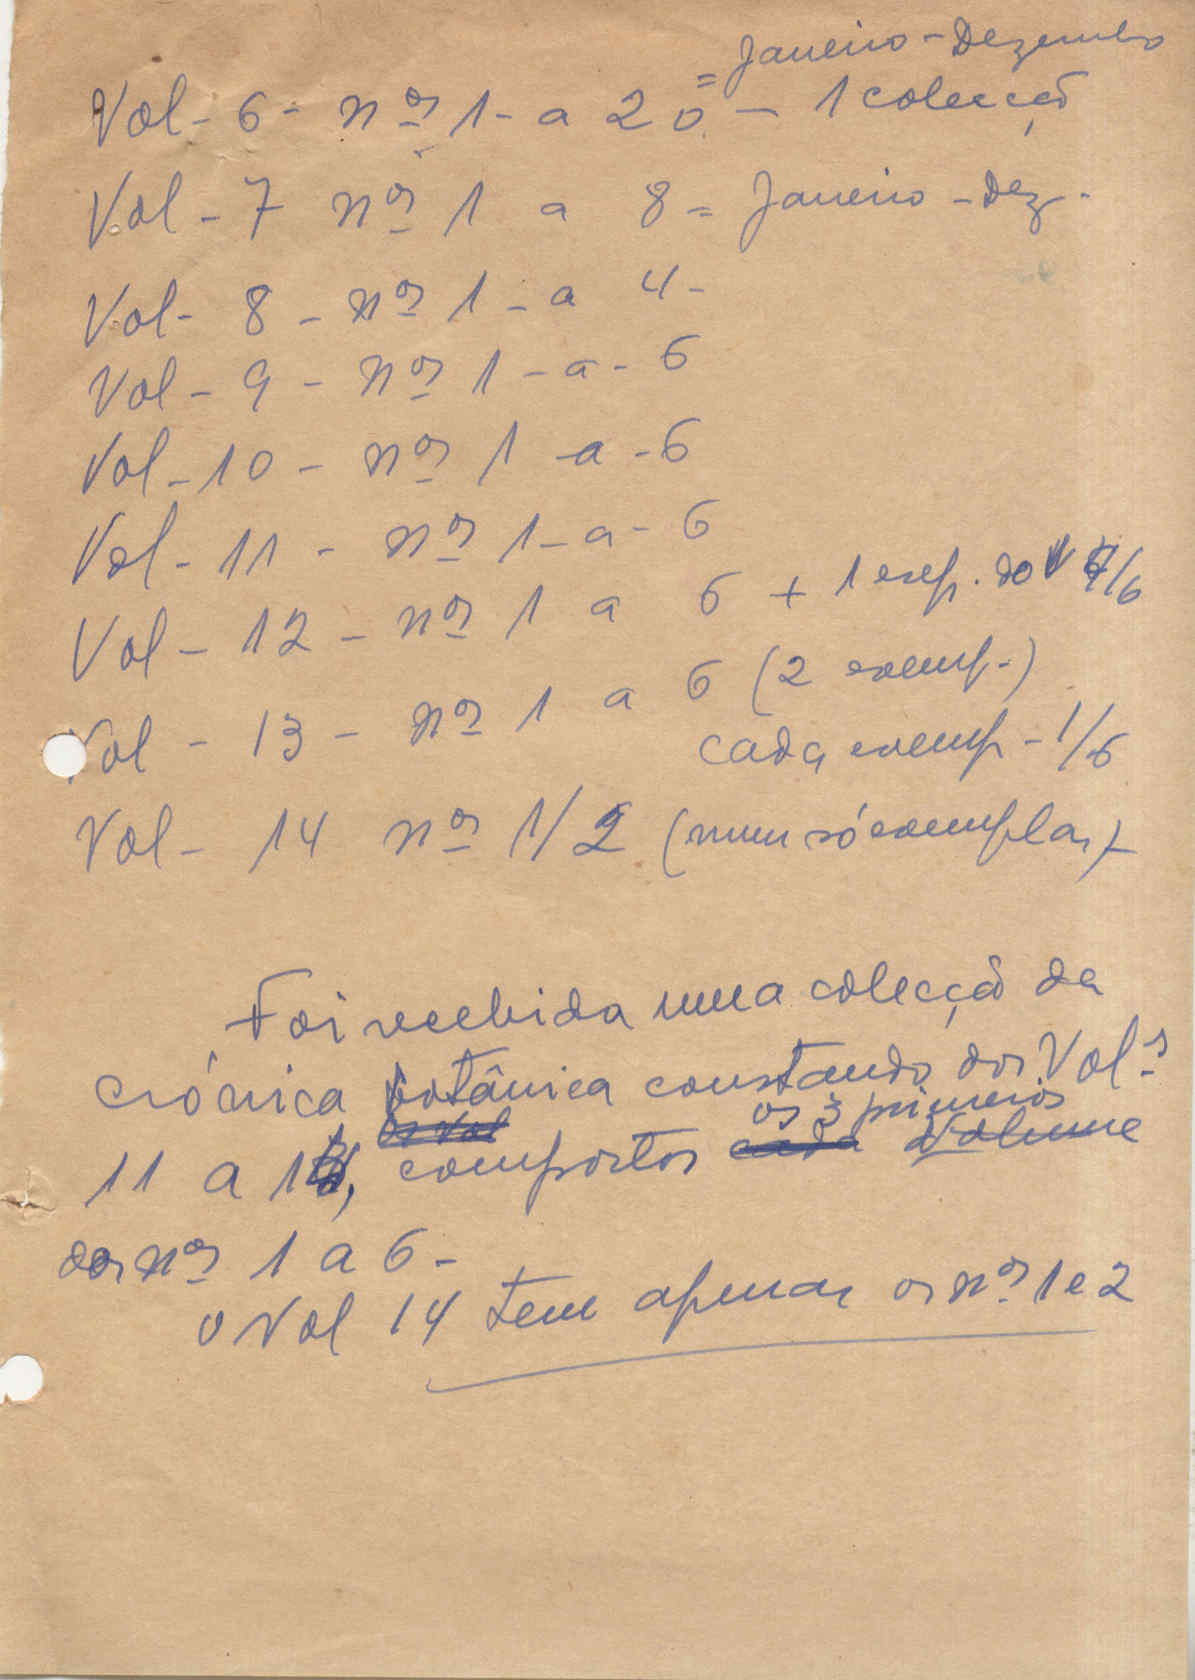 = Janeiro - Dezembro
Vol - 6 - nos 1 - a 20 - 1 colecção
Vol - 7 nos 1 a 8 = Janeiro - Dez -
Vol - 8 - nos 1 - a 4 -
Vol - 9 - nos 1 - a - 6
Vol - 10 - nos 1 - a - 6
Vol - 11 - nos 1 - a - 6
Vol - 12 - nos 1 a 6 + 1 exep. do /6
Vol - 13 - nos 1 a 6 (2 exemp.)
cada exemp - 1/6
Vol - 14 nos 1/2 (num só exemplar)
Foi recebida uma colecção da
crónica botânica constando dos Vol.s
os 3 primeiros
os Vol
11 a 14, compostos cada Volume
dos nos 1 a 6 -
o Vol 14 tem apenas os nos 1 e 2